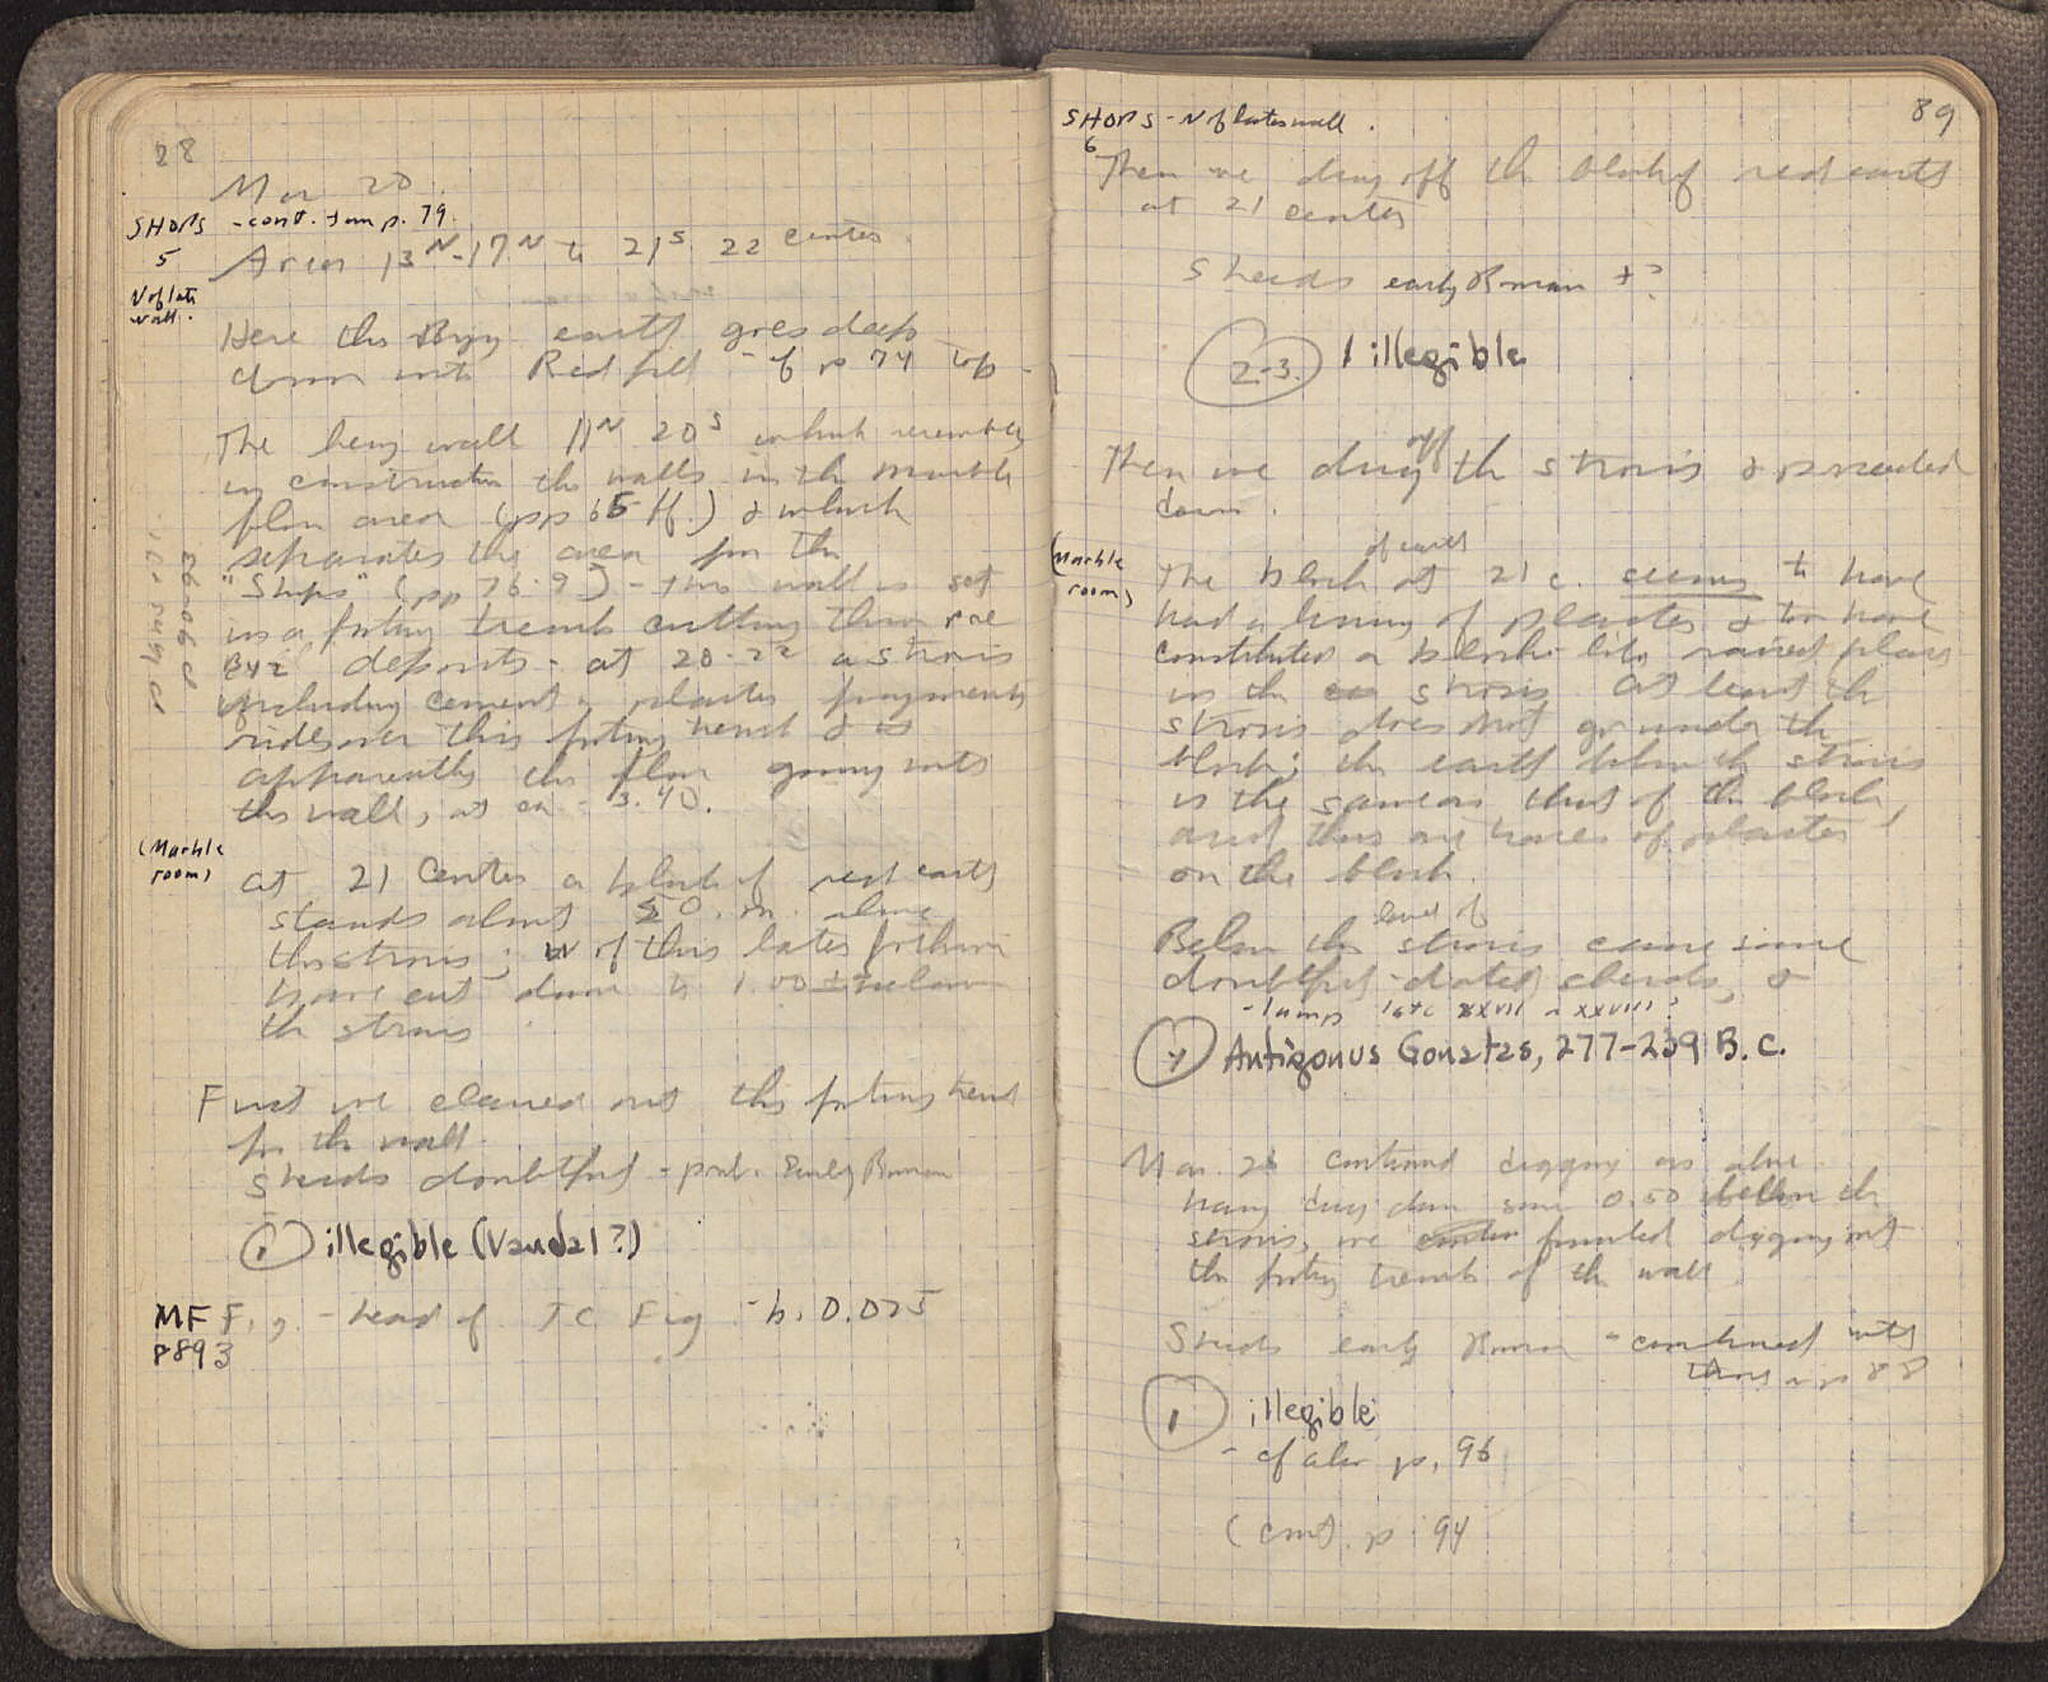 28
Mar 20.
SHOPS - cont. from p. 79.
5
Area 13N-17N to 21S 22 center.
N of late
wall.
Here the Byz earth goes deep
down into Red fill - cf p 74 top -
The heavy wall 11N 20S which resembles
in construction the walls in the marble
floor area (pp 65 ff.) & which
separates the area from the
"Shops" (pp 76-9) - this wall is set
in a footing trench cutting thru
Byz deposits - at 20-22 a strosis
including cement & plaster fragments
rides over this footing trench & is
apparently the floor going into
the wall, at ca - 3.40.
p 90-93
(Marble
room)
at 21 center a block of red earth
stands about 50. m. above
the strosis; of this later
have cut down to 1.00 ± below
the strosis
First we cleaned out this footing trench
for the wall.
Sherds doubtful - prob. Early Roman
1 illegible (Vandal?)
MF Fig. - head of TC Fig. - h. 0.025
8893
SHOPS - N of late wall.
89
6
Then we dug off the block of red earth
at 21 center
Sherds early Roman + ?
2-3. 1 illegible
Then we dug off the strosis & proceeded
down.
(Marble
room)
The block of earth at 21 c. seems to have
had a lining of plaster & to have
constituted a block-like raised place
in the strosis. At least the
strosis does not go under the
block; the earth below the strosis
is the same as that of the block,
and there are traces of plaster
on the block.
Below the level of strosis came some
doubtful-dated sherds, &
- lamp late XXVII or XXVIII?
4 Antigonus Gonatas, 277-239 B.C.
Mar. 21 continued digging as above.
having dug down some 0.50 below the
strosis, we finished digging out
the footing trench of the wall.
Sherds early Roman - combined with
those on p 88
1 illegible
- cf also p. 96
(cont. p. 94